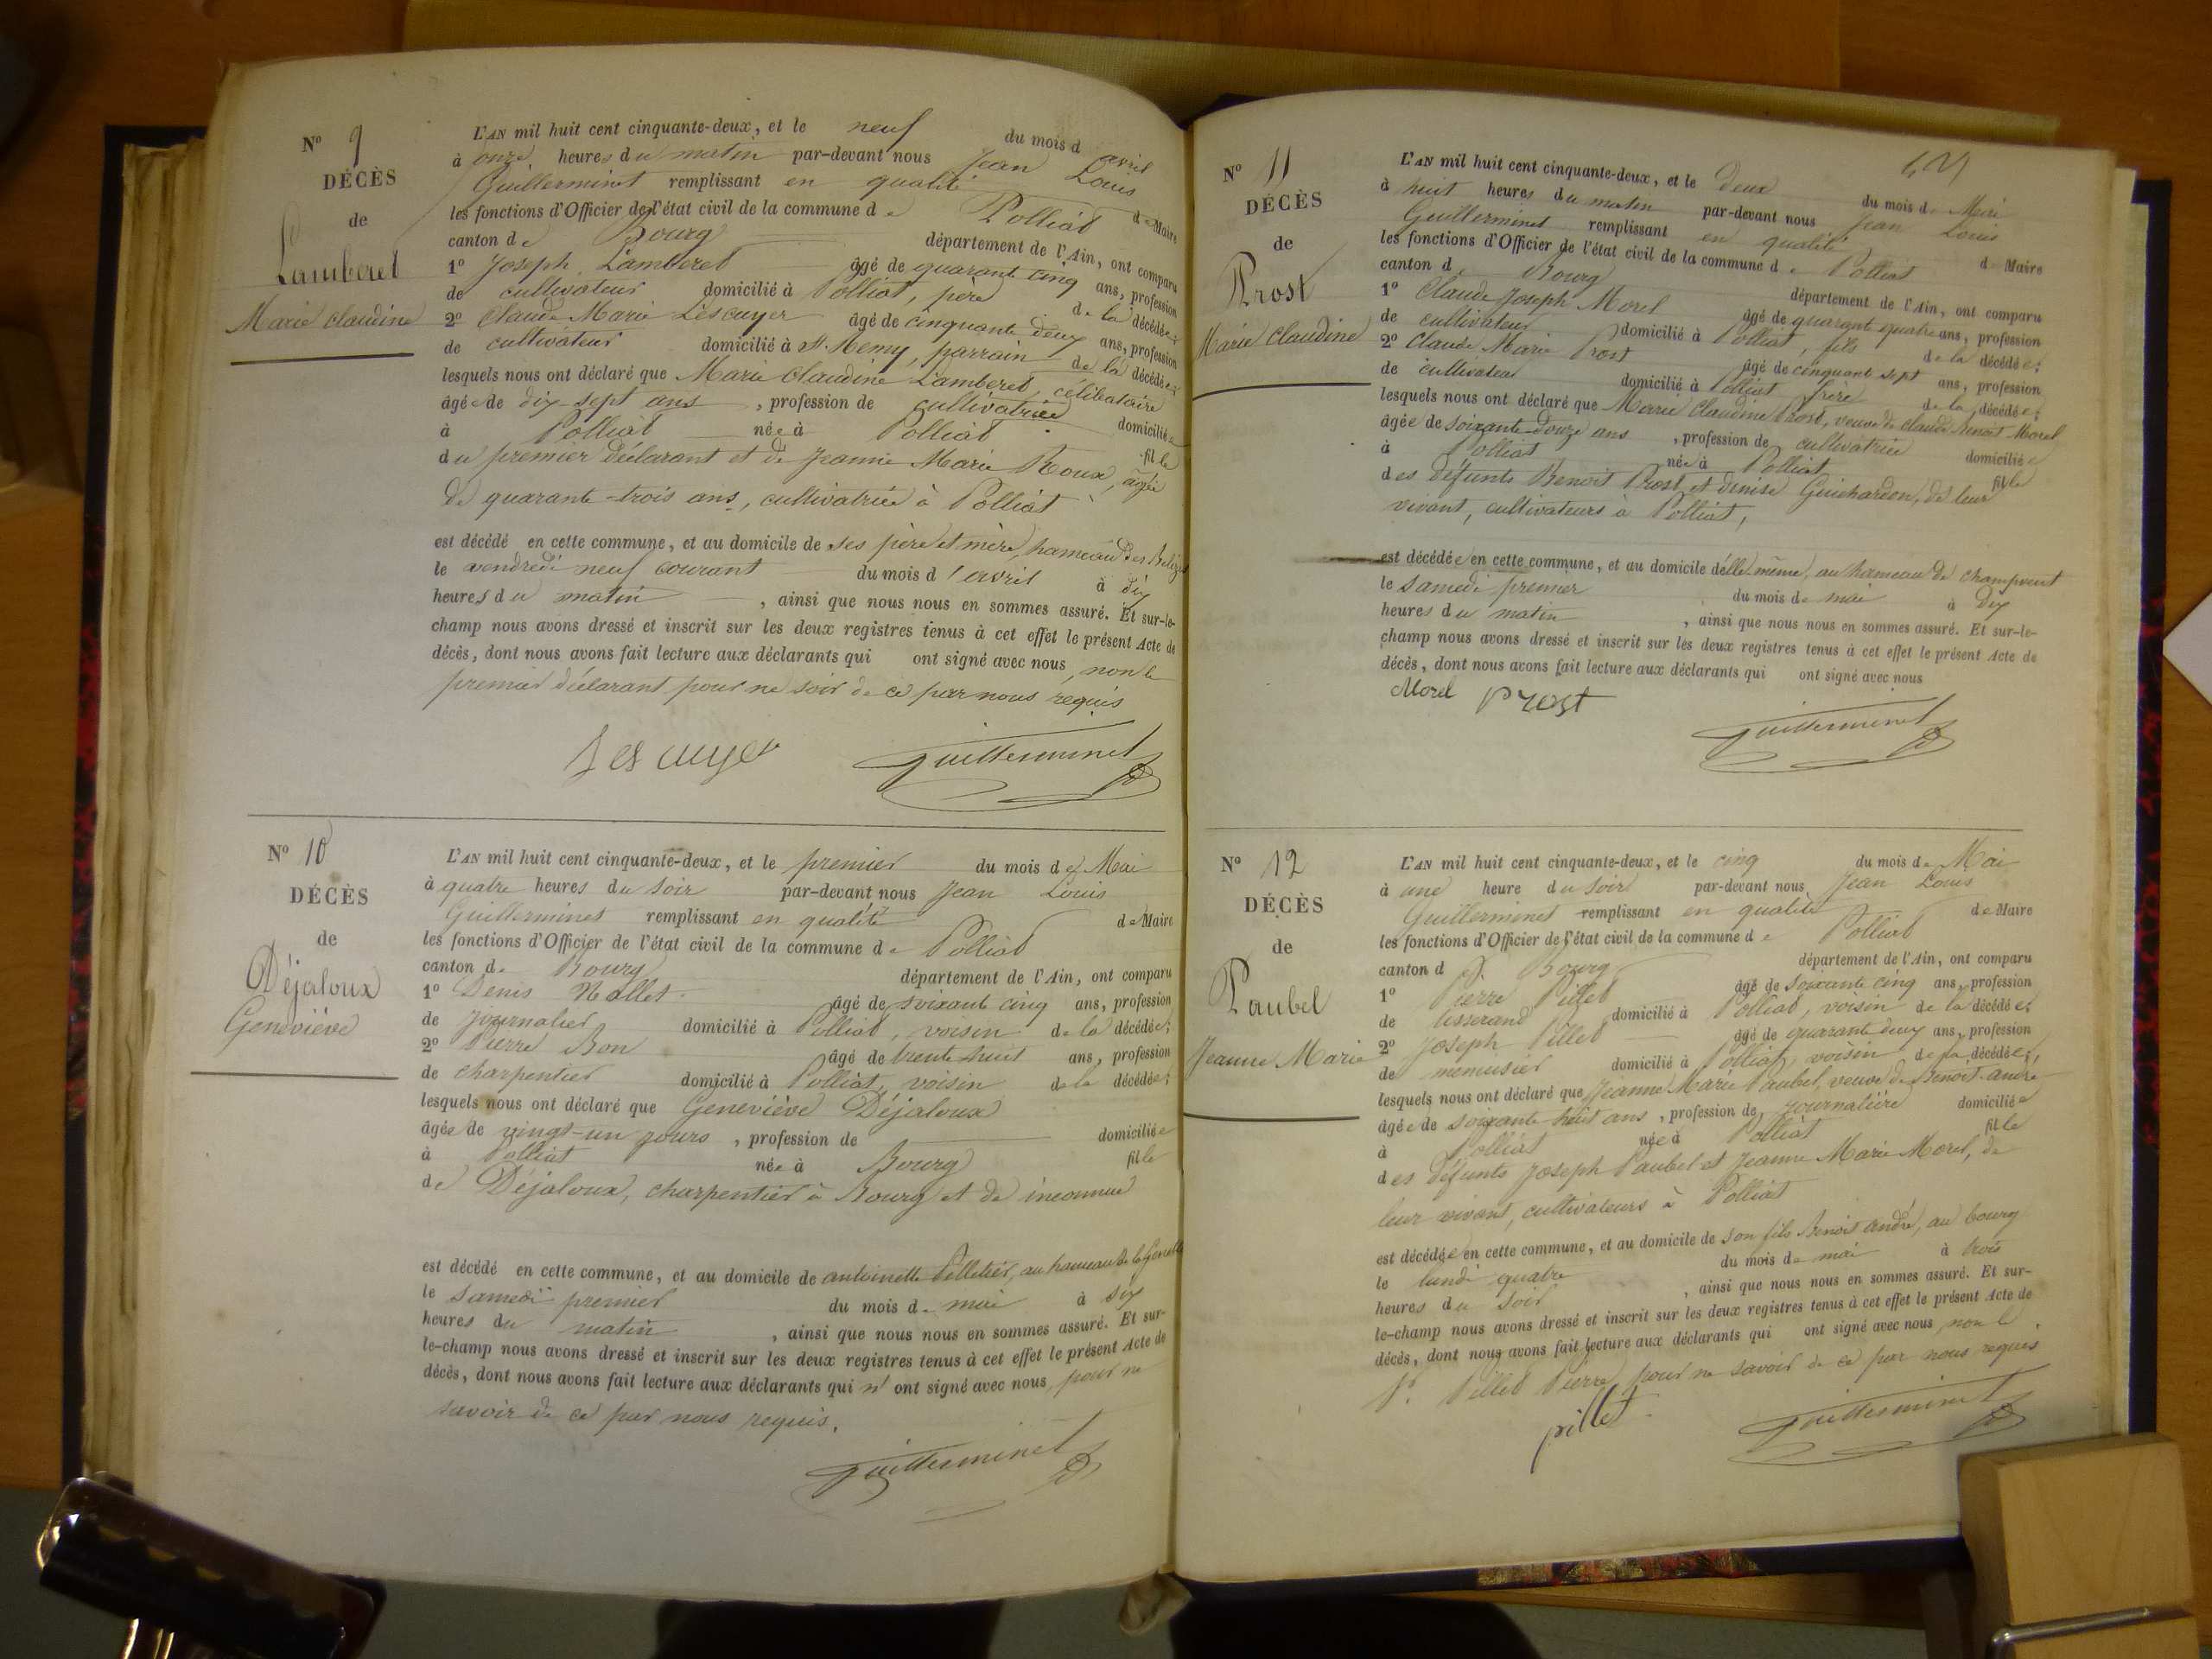 N° 9
DÉCÈS
de
Lamberet
Marie Claudine
L'AN mil huit cent cinquante-deux, et le neuf du mois d avril
à onze heures du matin par-devant nous Jean Louis
Guillerminet remplissant en qualité de Maire
les fonctions d'Officier de l'état civil de la commune de Polliat
canton de Bourg département de l'Ain, ont comparu
1° Joseph Lamberet âgé de quarant cinq ans, profession
de cultivateur domicilié à Polliat, père de la décédée;
2° Claude Marie Lescuyer âgé de cinquante deux ans, profession
de cultivateur domicilié à St. Remy, parrain de la décédée;
lesquels nous ont déclaré que Marie Claudine Lamberet, célibataire
âgée de dix-sept ans, profession de cultivatrice domiciliée
à Polliat née à Polliat fille
du premier déclarant et de Jeanne Marie Roux, agée
de quarante-trois ans, cultivatrice à Polliat
est décédé en cette commune, et au domicile de ses père et mère, hameau des
le vendredi neuf courant du mois d'avril à dix
heures du matin, ainsi que nous nous en sommes assuré. Et sur-le-
champ nous avons dressé et inscrit sur les deux registres tenus à cet effet le présent Acte de
décès, dont nous avons fait lecture aux déclarants qui ont signé avec nous, non le
premier déclarant pour ne savoir de ce par nous requis
Lescuyer Guillerminet
N° 10
DÉCÈS
de
Déjaloux
Geneviève
L'AN mil huit cent cinquante-deux, et le premier du mois de Mai
à quatre heures du soir par-devant nous Jean Louis
Guillerminet remplissant en qualité de Maire
les fonctions d'Officier de l'état civil de la commune de Polliat
canton de Bourg département de l'Ain, ont comparu
1° Denis Nallet âgé de soixant cinq ans, profession
de journalier domicilié à Polliat, voisin de la décédée;
2° Pierre Bon âgé de trente-huit ans, profession
de charpentier domicilié à Polliat, voisin de la décédée;
lesquels nous ont déclaré que Geneviève Déjaloux
âgée de vingt-un jours, profession de domiciliée
à Polliat née à Bourg fille
de Déjaloux, charpentier à Bourg et de inconnue
est décédé en cette commune, et au domicile de antoinette Pelletier, au hameau de la
le samedi premier du mois de mai à six
heures du matin, ainsi que nous nous en sommes assuré. Et sur-
le-champ nous avons dressé et inscrit sur les deux registres tenus à cet effet le présent Acte de
décès, dont nous avons fait lecture aux déclarants qui n'ont signé avec nous, pour ne
savoir de ce par nous requis.
Guillerminet
N° 11
DÉCÈS
de
Prost
Marie Claudine
L'AN mil huit cent cinquante-deux, et le deux du mois de Mai
à huit heures du matin par-devant nous Jean Louis
Guillerminet remplissant en qualité de Maire
les fonctions d'Officier de l'état civil de la commune de Polliat
canton de Bourg département de l'Ain, ont comparu
1° Claude Joseph Morel âgé de quarant quatre ans, profession
de cultivateur domicilié à Polliat, fils de la décédée;
2° Claude Marie Prost âgé de cinquant sept ans, profession
de cultivateur domicilié à Polliat frère de la décédée;
lesquels nous ont déclaré que Marie Claudine Prost, veuve de Claude Benoit Morel
âgée de soixante-douze ans, profession de cultivatrice domiciliée
à Polliat née à Polliat fille
des défunts Benoit Prost et denise Guichardon, de leur
vivant, cultivateurs à Polliat,
est décédée en cette commune, et au domicile d'elle même, au hameau de champvent
le samedi premier du mois de mai à dix
heures du matin, ainsi que nous nous en sommes assuré. Et sur-le-
champ nous avons dressé et inscrit sur les deux registres tenus à cet effet le présent Acte de
décès, dont nous avons fait lecture aux déclarants qui ont signé avec nous
Morel Prost
Guillerminet
N° 12
DÉCÈS
de
Paubel
Jeanne Marie
L'AN mil huit cent cinquante-deux, et le cinq du mois de Mai
à une heure du soir par-devant nous Jean Louis
Guillerminet remplissant en qualité de Maire
les fonctions d'Officier de l'état civil de la commune de Polliat
canton de Bourg département de l'Ain, ont comparu
1° Pierre Pillet âgé de soixante cinq ans, profession
de tisserand domicilié à Polliat, voisin de la décédée;
2° Joseph Pillet âgé de quarante deux ans, profession
de menuisier domicilié à Polliat, voisin de la décédée;
lesquels nous ont déclaré que Jeanne Marie Paubel, veuve de Benoit andré
âgée de soixante-huit ans, profession de journalière domiciliée
à Polliat née à Polliat fille
des défunts Joseph Paubel et Jeanne Marie Morel, de
leur vivant, cultivateurs à Polliat
est décédée en cette commune, et au domicile de son fils Benoit andré, au bourg
le lundi quatre du mois de mai à trois
heures du soir, ainsi que nous nous en sommes assuré. Et sur-
le-champ nous avons dressé et inscrit sur les deux registres tenus à cet effet le présent Acte de
décès, dont nous avons fait lecture aux déclarants qui ont signé avec nous, non le
Pillet Pierre, pour ne savoir de ce par nous requis
pillet Guillerminet